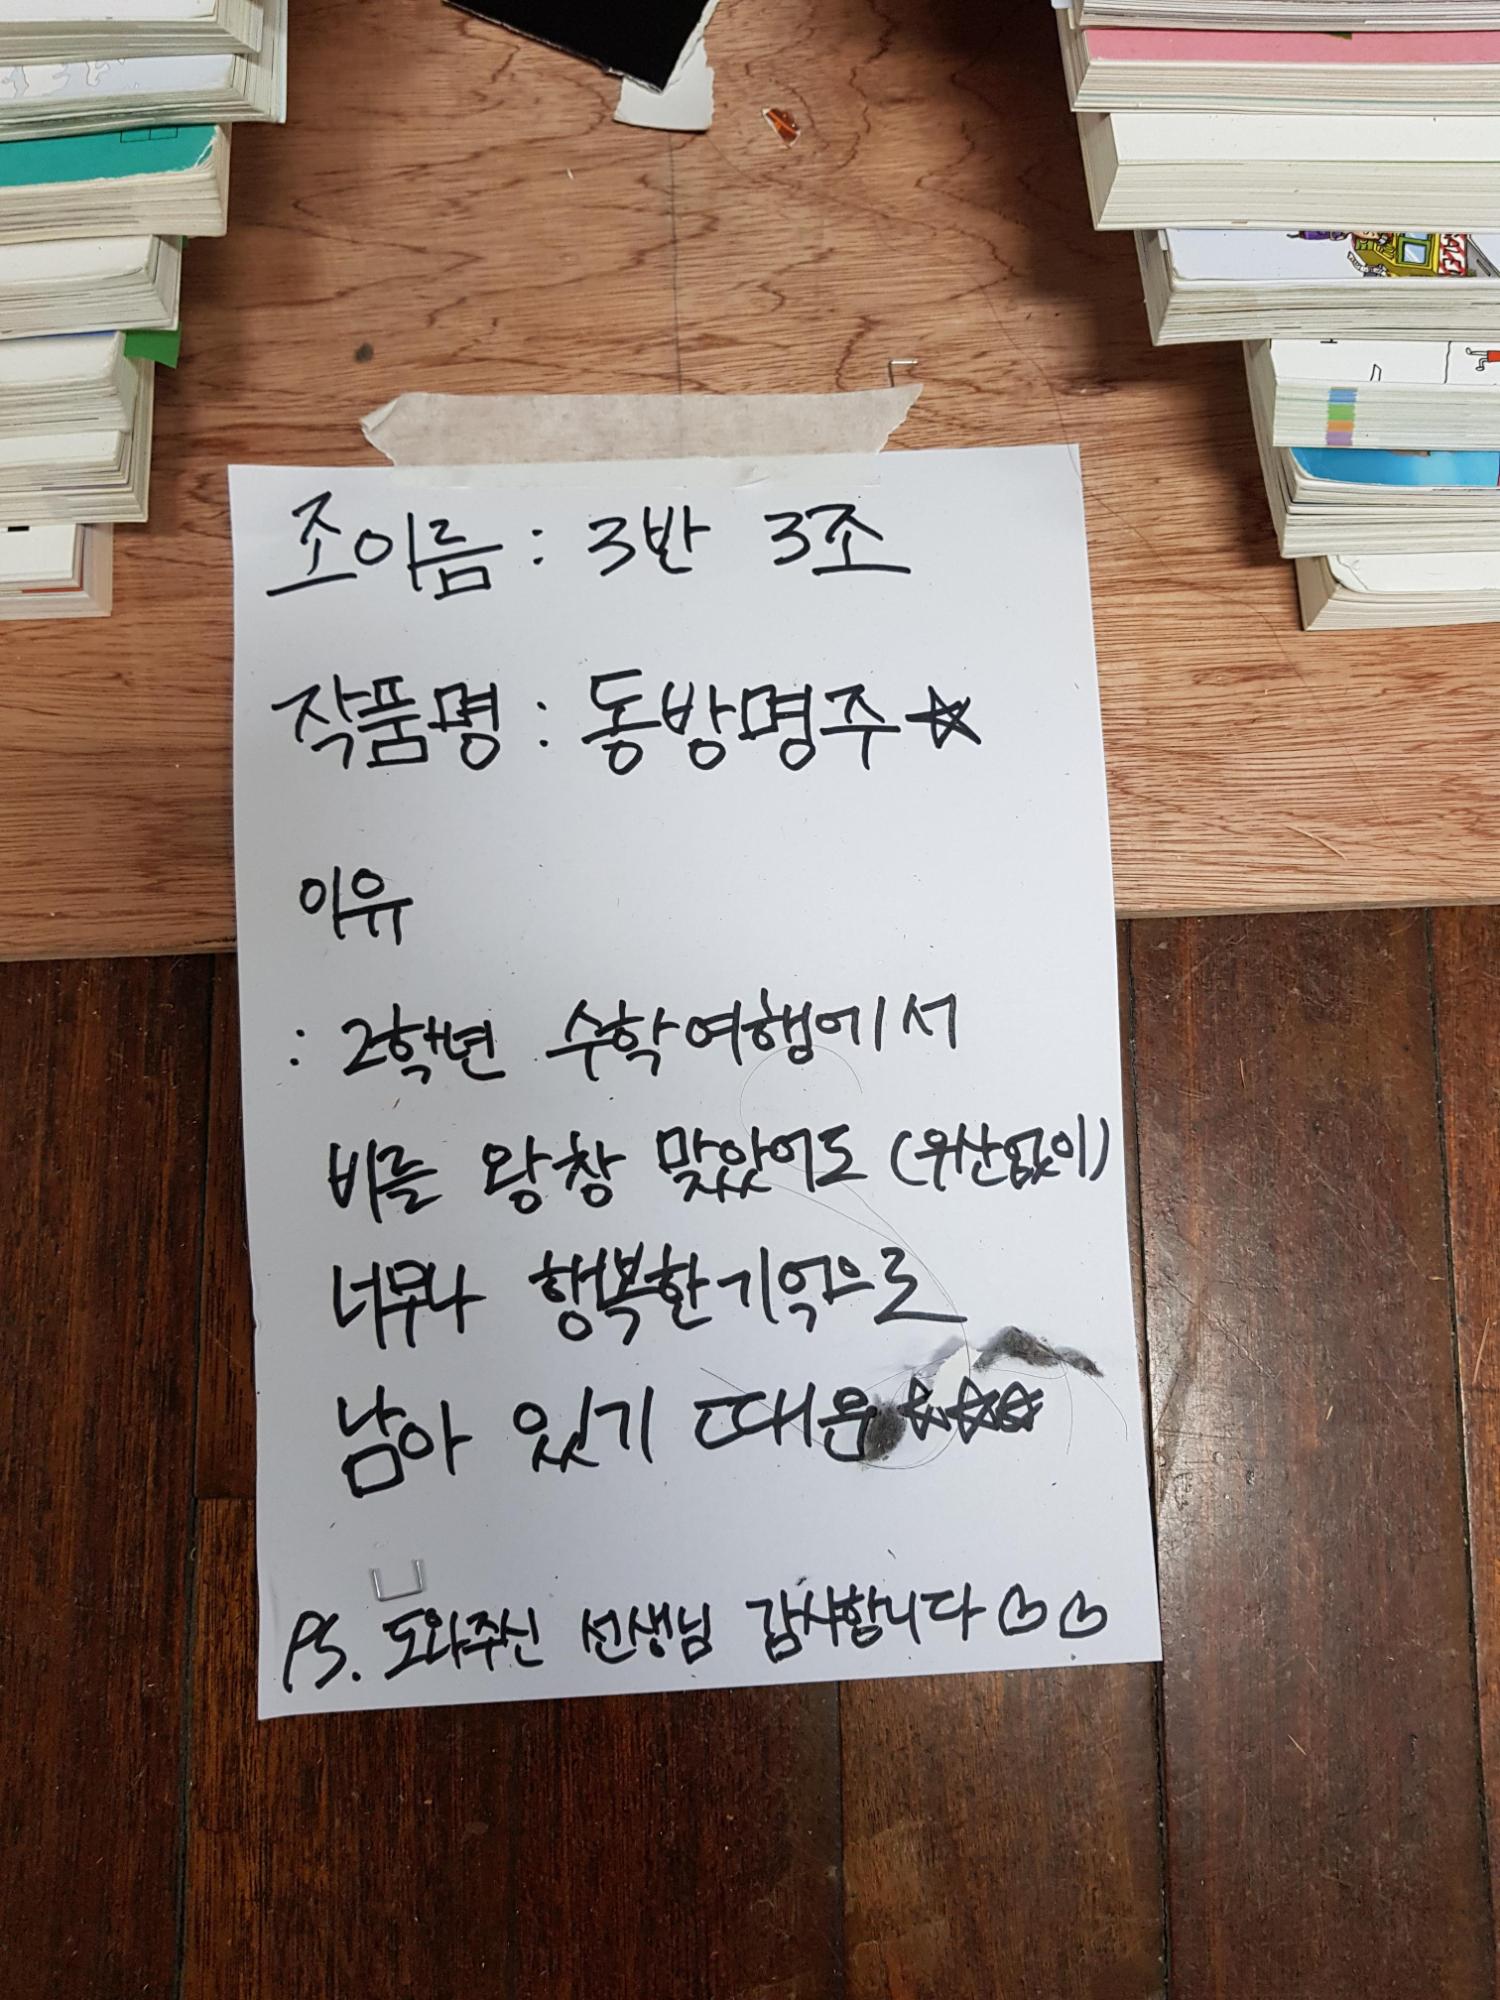 조이름 : 3반 3조
작품명 : 동방명주☆
이유
: 2학년 수학여행에서
비를 왕창 맞았어도 (우산없이)
너무나 행복한기억으로
남아 있기 때문 ☆☆☆
PS. 도와주신 선생님 감사합니다♡♡